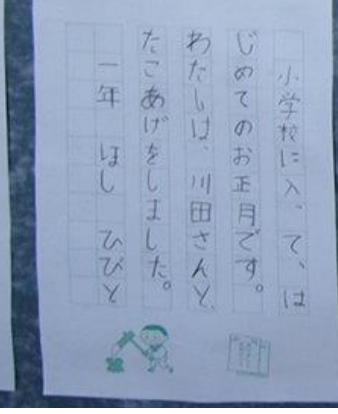 小学校に入って、は
じめてのお正月です。
わたしは、川田さんと、
たこあげをしました。
一年 ほし ひびと